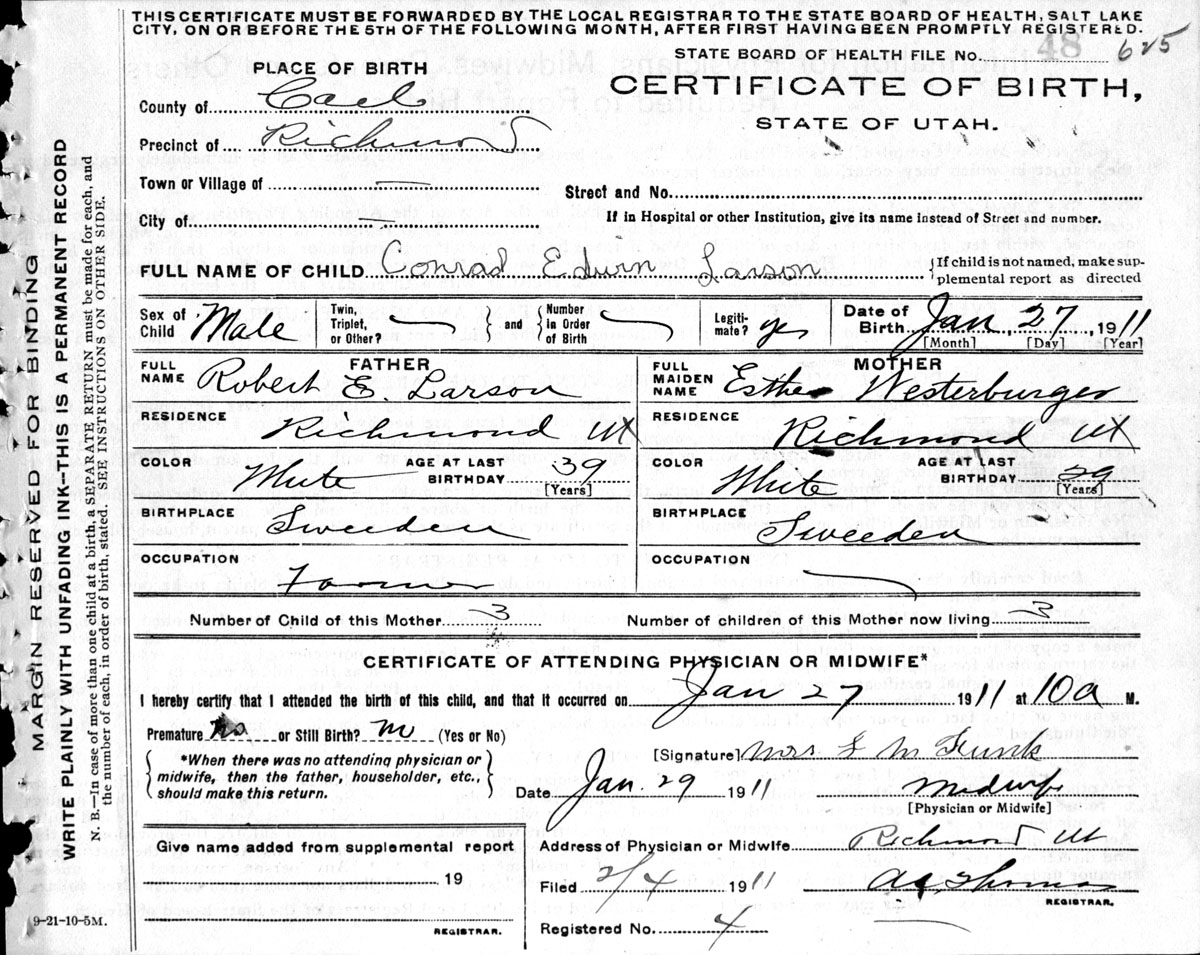 THIS CERTIFICATE MUST BE FORWARDED BY THE LOCAL REGISTRAR TO THE STATE BOARD OF HEALTH, SALT LAKE
CITY, ON OR BEFORE THE 5TH OF THE FOLLOWING MONTH, AFTER FIRST HAVING BEEN PROMPTLY REGISTERED.
STATE BOARD OF HEALTH FILE No. 48 625
PLACE OF BIRTH
CERTIFICATE OF BIRTH,
STATE OF UTAH.
County of
Precinct of Richmond
Town or Village of —
Street and No.
City of —
If in Hospital or other Institution, give its name instead of Street and number.
FULL NAME OF CHILD Conrad Edwin Larson
{If child is not named, make sup-
plemental report as directed
Sex of Child Male
Twin, Triplet, or Other?
} and {
Number in Order of Birth
Legiti-mate? yes
Date of Birth Jan 27, 1911
[Month] [Day] [Year]
FATHER
FULL NAME Robert E. Larson
RESIDENCE
Richmond Ut
COLOR White
AGE AT LAST BIRTHDAY 39
[Years]
BIRTHPLACE
Sweeden
OCCUPATION
MOTHER
FULL MAIDEN NAME Esther
RESIDENCE
Richmond Ut
COLOR White
AGE AT LAST BIRTHDAY 29
[Years]
BIRTHPLACE
Sweeden
OCCUPATION
Number of Child of this Mother 3
Number of children of this Mother now living 3
CERTIFICATE OF ATTENDING PHYSICIAN OR MIDWIFE*
I hereby certify that I attended the birth of this child, and that it occurred on Jan 27 1911 at 10a M.
Premature No or Still Birth? (Yes or No)
{*When there was no attending physician or
midwife, then the father, householder, etc.,
should make this return.}
[Signature] Mrs M Funk
Date Jan. 29 1911
Midwife
[Physician or Midwife]
Give name added from supplemental report
19
REGISTRAR.
Address of Physician or Midwife Richmond Ut
Filed 2/4 1911
Thomas
REGISTRAR.
Registered No. 4
9-21-10-5M.
MARGIN RESERVED FOR BINDING
WRITE PLAINLY WITH UNFADING INK—THIS IS A PERMANENT RECORD
N. B.—In case of more than one child at a birth, a SEPARATE RETURN must be made for each, and
the number of each, in order of birth, stated. SEE INSTRUCTIONS ON OTHER SIDE.